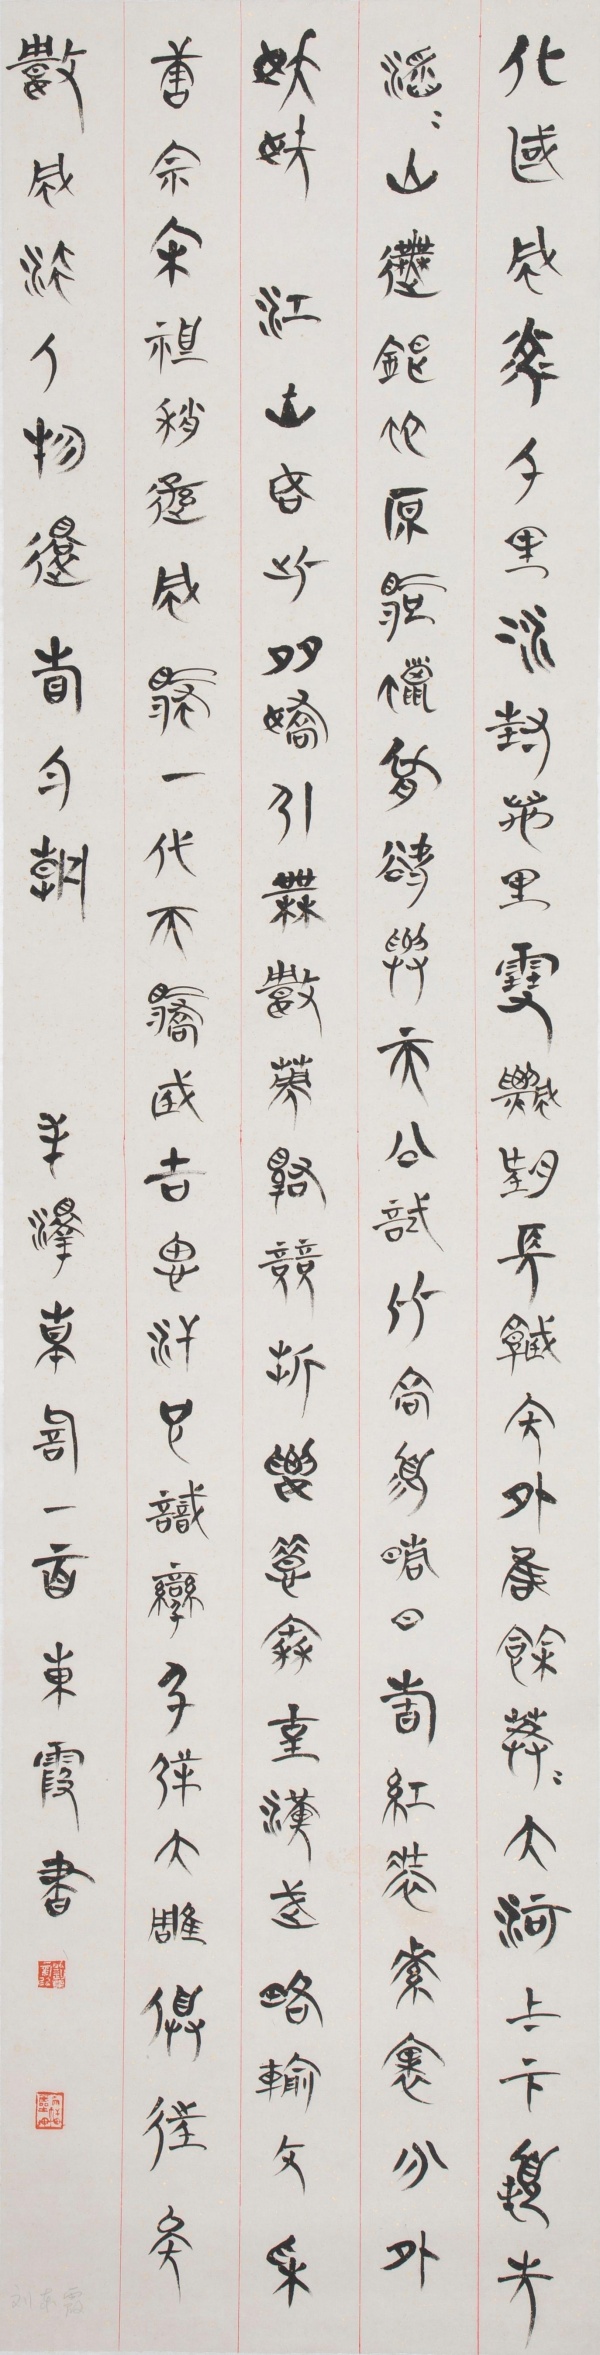 北國風光千里冰封萬里雪飄望長城內外惟餘莽〻大河上下頓失
滔〻山舞銀蛇原馳蠟象欲與天公試比高須晴日看紅裝素裹分外
妖嬈江山如此多嬌引無數英雄競折腰惜秦皇漢武略輸文采
唐宗宋祖稍遜風騷一代天驕成吉思汗只識彎弓射大雕俱往矣
數風流人物還看今朝 毛澤東詞一首東霞書
刘东霞